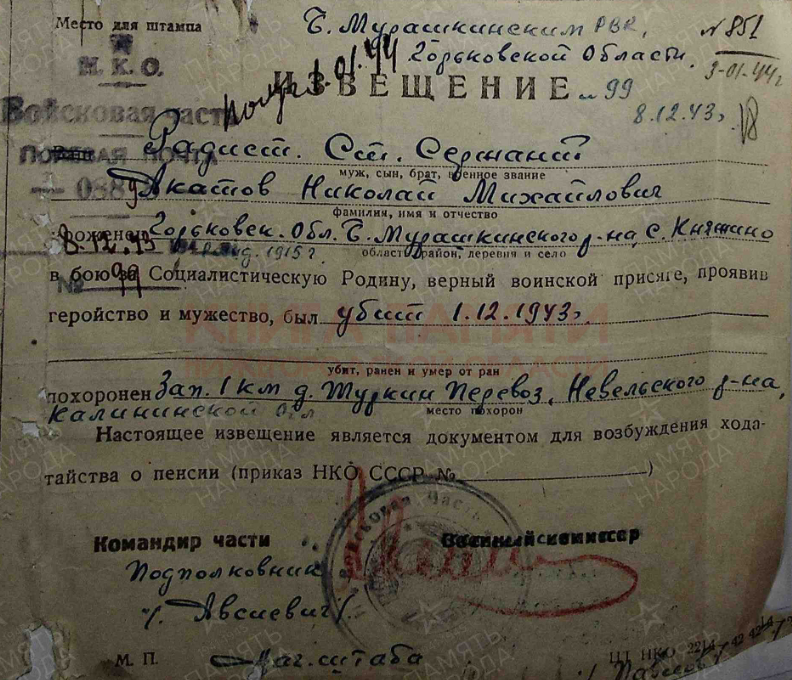 Место для штампа
Б. Мурашкинским РВК,
№851
Горьковской Области.
3-01-44г
Н. К. О.
01.44
ИЗВЕЩЕНИЕ №99
Войсковая часть
8.12.43г
Радист. Ст. Сержант
ПОЛЕВАЯ ПОЧТА
муж, сын, брат, военное звание
Акатов Николай Михайлович
фамилия, имя и отчество
Горьковск. Обл. Б. Мурашкинского р-на, с. Княжино
8.12.43
1915 г.
область, район, деревня и село
№ 99
в бою за Социалистическую Родину, верный воинской присяге, проявив
геройство и мужество, был убит 1.12.1943г.
убит, ранен и умер от ран
похоронен Зап. 1 км д. Туркин Перевоз, Невельского р-на,
Калининской обл
место похорон
Настоящее извещение является документом для возбуждения хода-
тайства о пенсии (приказ НКО СССР №)
Войсковая Часть
Командир части
Военный комиссар
Подполковник
/Авсиевич/
М. П.
Нач. штаба
ЦТ НКО 2214
ПАМЯТЬ НАРОДА
КНИГА ПАМЯТИ